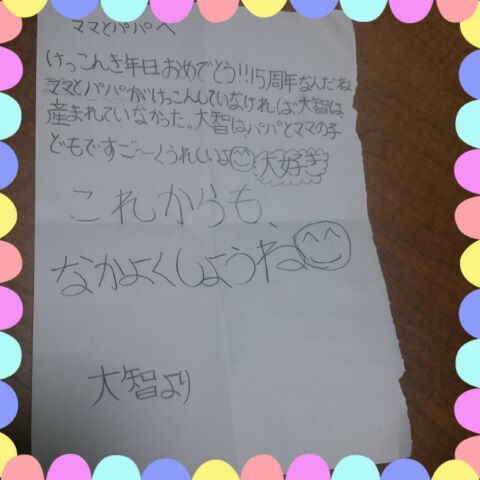 ママとパパへ
けっこんき年日おめでとう!!!15周年なんだね
ママとパパがけっこんしていなければ大智は
産まれていなかった。大智はパパとママの子
どもですご〜くうれしいよ 大好き
これからも、
なかよくしようね
大智より